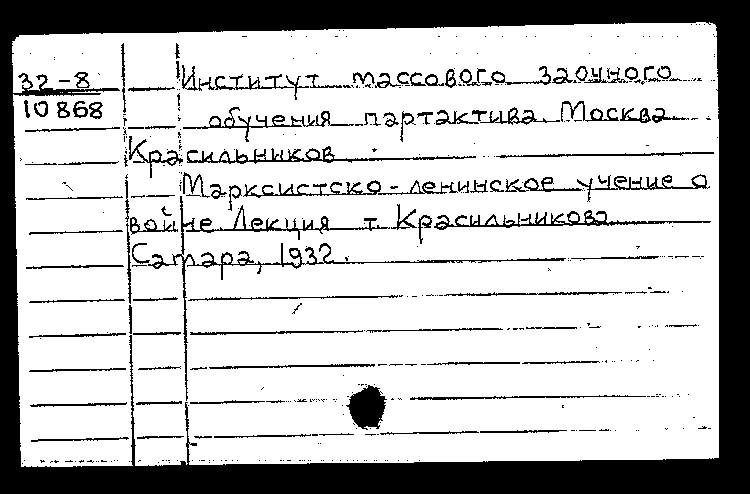 32-8
10868
Институт массового заочного
обучения партактива. Москва.
Красильников.
Марксистско-ленинское учение о
войне. Лекция т. Красильникова.
Самара, 1932.